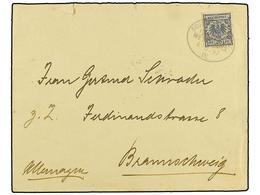 Frau Gertrud Schrader
z. Z. Ferdinandstrasse 8
Braunschweig
Allemagne